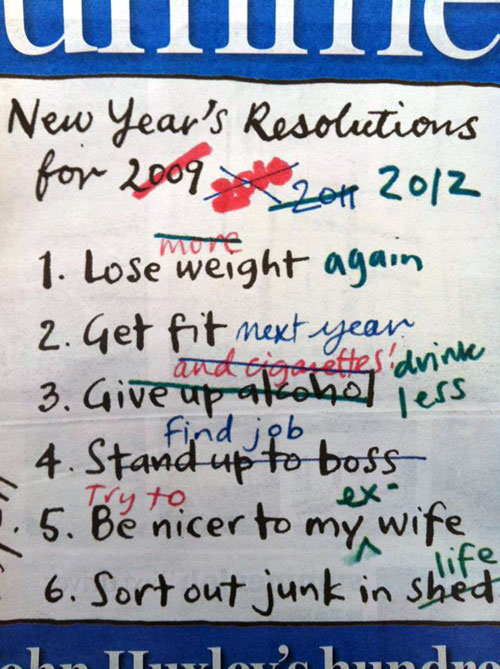 New Year's Resolutions
for 2009 2011 2012
more
1. Lose weight again
2. Get fit next year
and cigarettes! drink
3. Give up alcohol less
find job
4. Stand up to boss
Try to ex-
5. Be nicer to my ^ wife
life
6. Sort out junk in shed
ohn Huxley's hundre